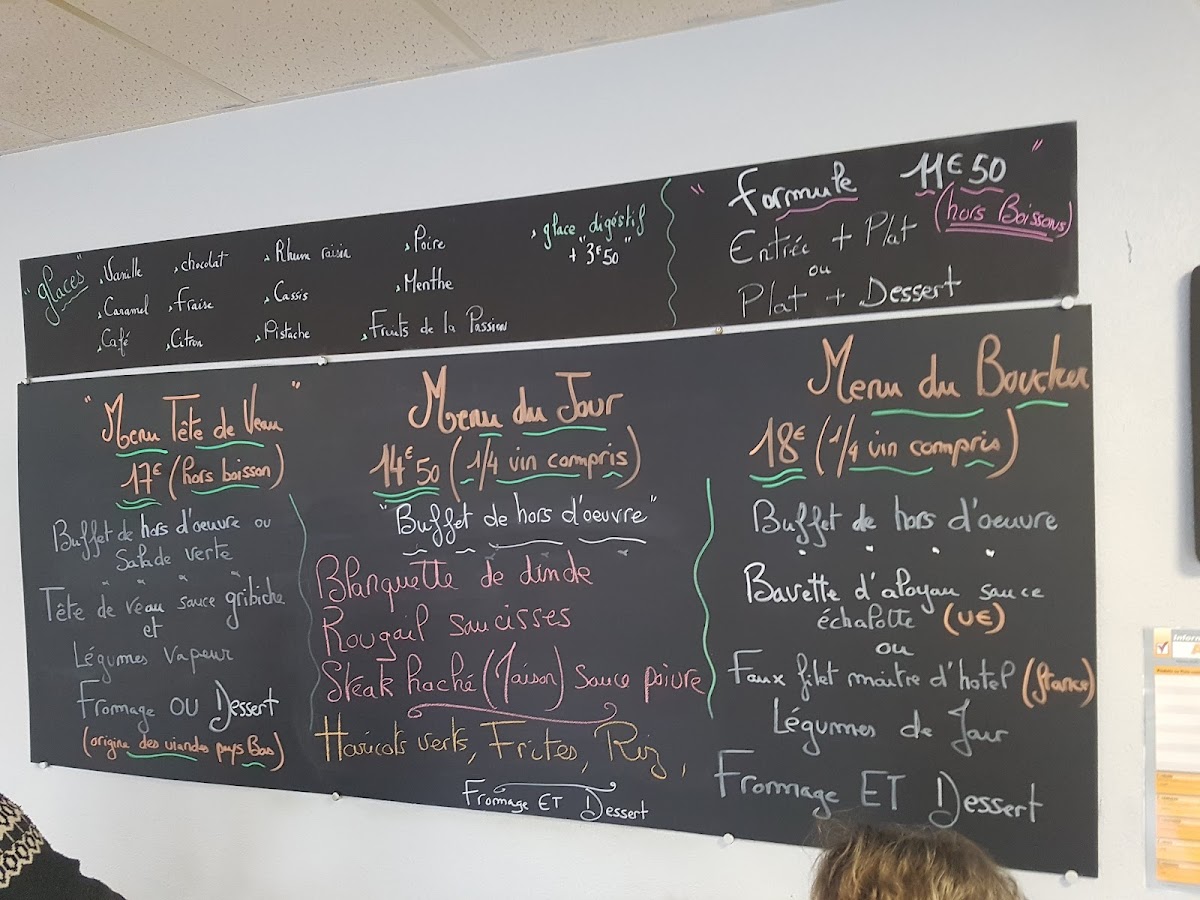 "glaces"
, Vanille
, chocolat
, Rhum raisin
, Poire
, Caramel
, Fraise
, Cassis
, Menthe
, Café
, Citron
, Pistache
, Fruits de la Passion
, glace digéstif
+ "3€50"
" Formule 11€50 "
(hors Boissons)
Entrée + Plat
ou
Plat + Dessert
" Menu Tête de Veau "
17€ (hors boisson)
Buffet de hors d'oeuvre ou
Salade verte
Tête de veau sauce gribiche
et
Légumes Vapeur
Fromage OU Dessert
(origine des viandes pays Bas)
Menu du Jour
14€50 (1/4 vin compris)
"Buffet de hors d'oeuvre"
Blanquette de dinde
Rougail saucisses
Steak haché (Maison) sauce poivre
Haricots verts, Frites, Riz,
Fromage ET Dessert
Menu du Boucher
18€ (1/4 vin compris)
Buffet de hors d'oeuvre
Bavette d'aloyau sauce
échalotte (UE)
ou
Faux filet maitre d'hotel (france)
Légumes de Jour
Fromage ET Dessert